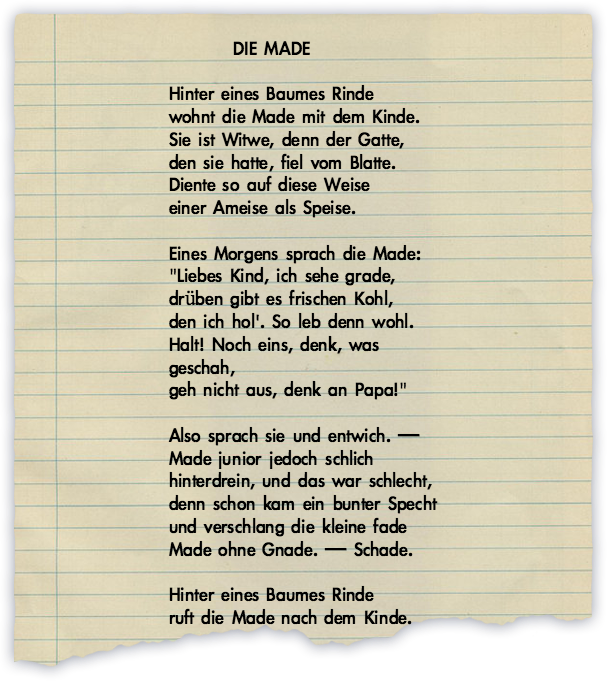 DIE MADE
Hinter eines Baumes Rinde
wohnt die Made mit dem Kinde.
Sie ist Witwe, denn der Gatte,
den sie hatte, fiel vom Blatte.
Diente so auf diese Weise
einer Ameise als Speise.
Eines Morgens sprach die Made:
"Liebes Kind, ich sehe grade,
drüben gibt es frischen Kohl,
den ich hol'. So leb denn wohl.
Halt! Noch eins, denk, was
geschah,
geh nicht aus, denk an Papa!"
Also sprach sie und entwich. —
Made junior jedoch schlich
hinterdrein, und das war schlecht,
denn schon kam ein bunter Specht
und verschlang die kleine fade
Made ohne Gnade. — Schade.
Hinter eines Baumes Rinde
ruft die Made nach dem Kinde.